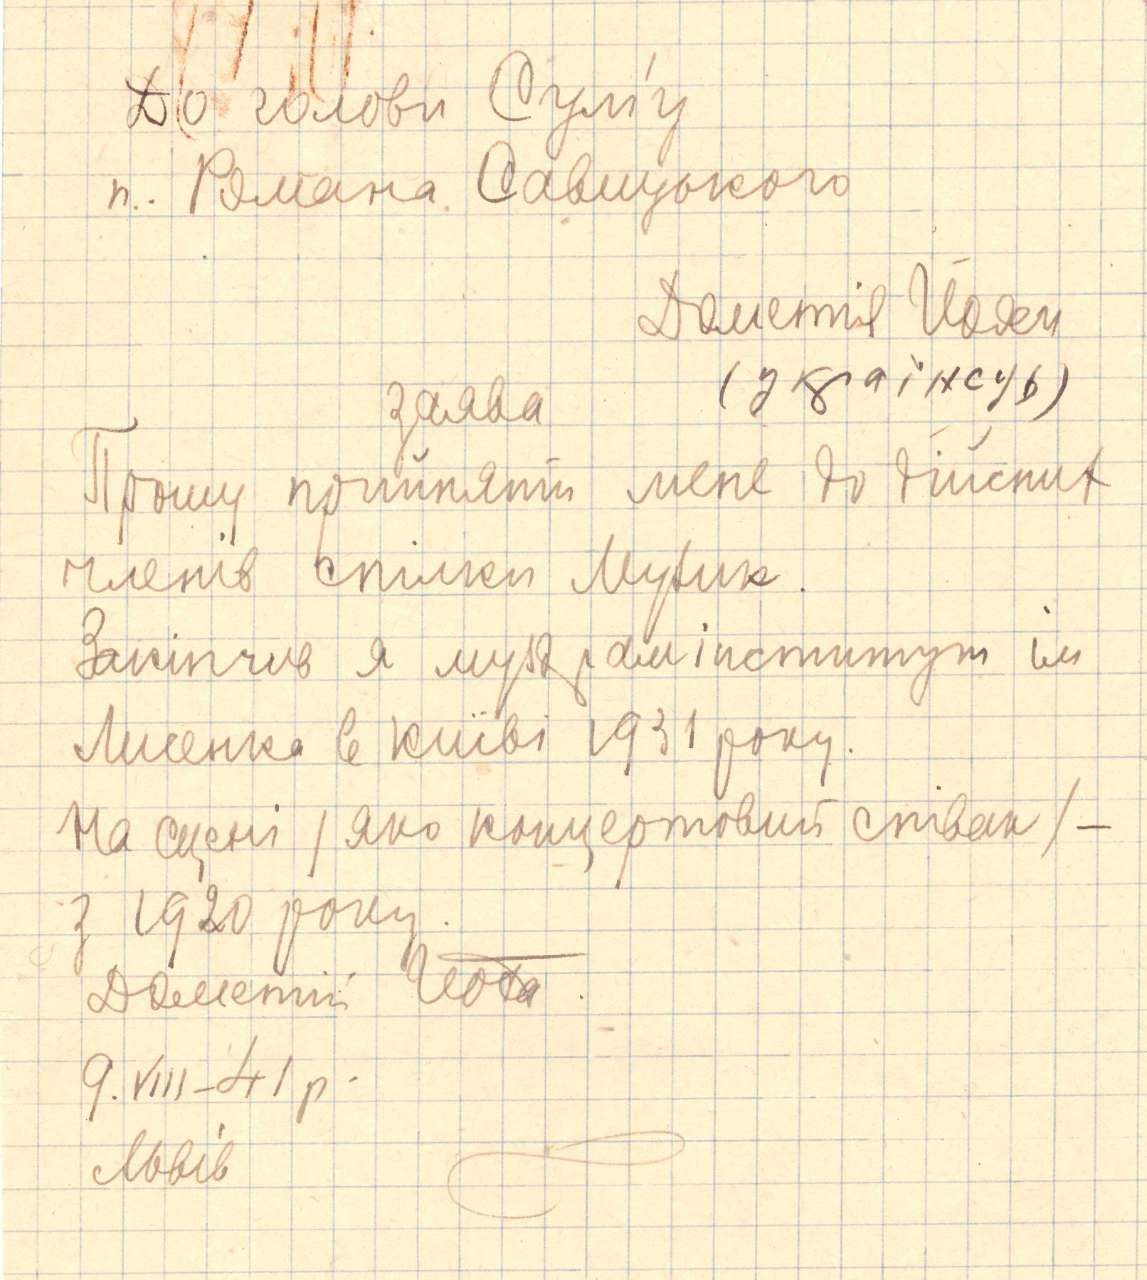 До голови Сулі'у
п. Романа Савицького
Дометія Йохи
(українсуь)
заява
Прошу прийняти мене до дійсних
членів спілки Музик.
Закінчив я муздрамінститут ім
Лисенка в Київі 1931 року.
На сцені / яко концертовий співак / –
з 1920 року.
Дометій Йоха.
9.VIII–41 р.
Львів